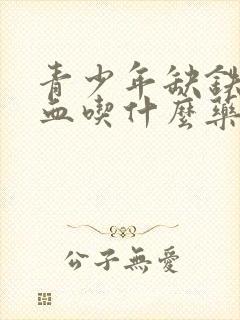 青少年缺鉄
血喫什麼藥
公子無愛